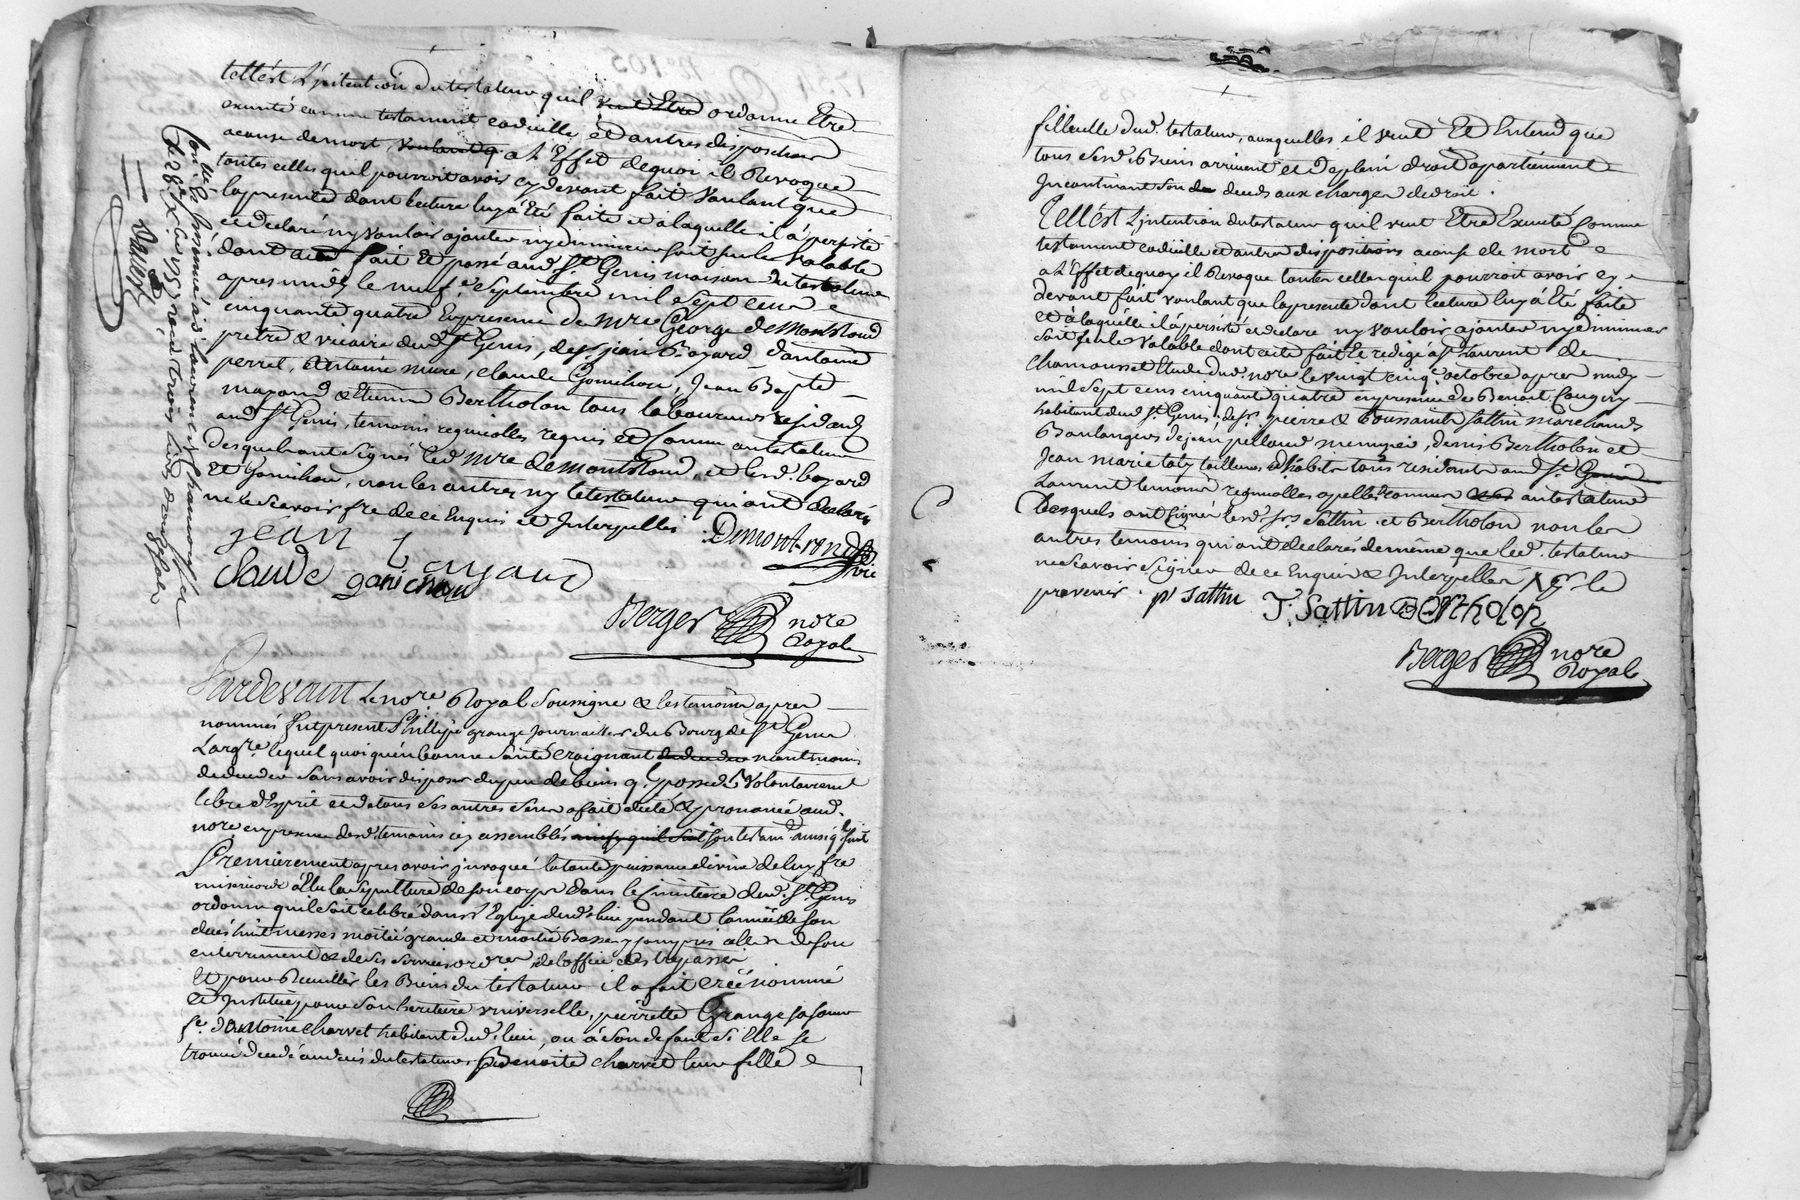 tellest L'jntention du testateur quil veut Etre ordonne Etre
executé comme testament codicille et autres dispositions
acause demort, voulant q a L'Effet dequoi il Revoque
toutes celles quil pourroit avoir cydevant fait Voulant que
lapresente dont lecture luy á Eté faite et à laquelle il á persisté
et declaré ny vouloir ajouter ny diminuer soit seulle Valable
dont acte fait Et passé aud. St Genis maison du testateur
apres midy le neuf e Septembre mil sept cent
cinquante quatre En presence de Mre George deMontrond
prêtre & vicaire dud St Genis, de Sr jean Bajard d'antoine
perrel, Antoine mure, claude Gonichon, Jean Bapte
mazand & Etienne Bertholon tous laboureurs residents
aud St Genis, temoins regnicolles requis et connus autestateur
desquels ont Signés led Mre demontrond, et lesd. bajard
et Gonichon, non les autres ny letestateur qui ont declaré
ne le Scavoir fre de ce Enquis et Jnterpellés.
Jean Bajard
Demontrond
vic
claude gonichon
Berger nore
Royal
Con.lé & Insinué à St Laurent de chamousset
le 28e Xbre 1757 recu trois livres douze sols
Valloset
Pardevant Le nore. Royal Soussigné & les temoins apres
nommés fut present Phillipe Grange Journallier du Bourg de St Genis
Largre. lequel quoi quén bonne Santé craignant neantmoins
dedeceder Sans avoir disposer dupeu debiens q'l possede, Volontairement
libre d'Esprit et detous ses autres sens a fait dicté & prononcé aud.
nore en presence desd. temoins icy assemblés ainsy quil suit son testamt ainsi q'l suit
Premierement apres avoir jnvoqué la toute puissance divine de luy fre
misericorde á Elu la Sepulture de son corps dans le Cimitiere dud. St Genis
ordonne quil soit celebré dans l'Eglize dud. lieu pendant l'année de son
decés huit messes moitié grande et moitié Basse y compris celles de son
enterrement & de ses services ordres de l'office des trepassés
Et pour Recuillir les Biens du testateur il a fait créé nommé
et Jnstitué pour Son heritiere vniverselle, pierrette Grange sa soeur
fe. d'antoine charvet habitant dud. lieu, ou á Son defaut Si Elle se
trouve decedé audecés du testateur Benoite charvet leur fille &
filleulle dud. testateur, auxquelles il veut Et Entend que
tous Sesd. Biens arrivent et de plein droit apartiennent
Jncontinant Son de deceds aux charges de droit.
Tellést L'jntention du testateur quil veut Etre Executé comme
testament codicille et autres dispositions acause de mort
a L'Effet dequoy il Revoque toutes celles quil pourroit avoir cy
devant fait voulant que lapresente dont lecture luy á Eté faite
et á laquelle il á persisté et declare ny vouloir ajouter ny diminuer
soit seulle valable dont acte fait Et redigé á St Laurent de
chamousset Etude dud. nore le vingt cinq e octobre apres midy
mil Sept cens cinquante quatre en presence de Benoit Cougny
habitant dud St Genis, de Srs pierre & Toussaint Sattin marchands
Boulangers, de jean pelland menusier, denis Bertholon et
Jean marie taly tailleurs d'habits tous residents aud St Genis
Laurent temoins regnicolles apellés connus autestateur
Desquels ont Signés lesd. Srs Sattin et Bertholon non les
autres temoins qui ont declarés dememe que led. testateur
ne Scavoir Signer de ce Enquis & Jnterpellés
prevenir. p' Sattin T. Sattin Bertholon
Berger nore
Royal